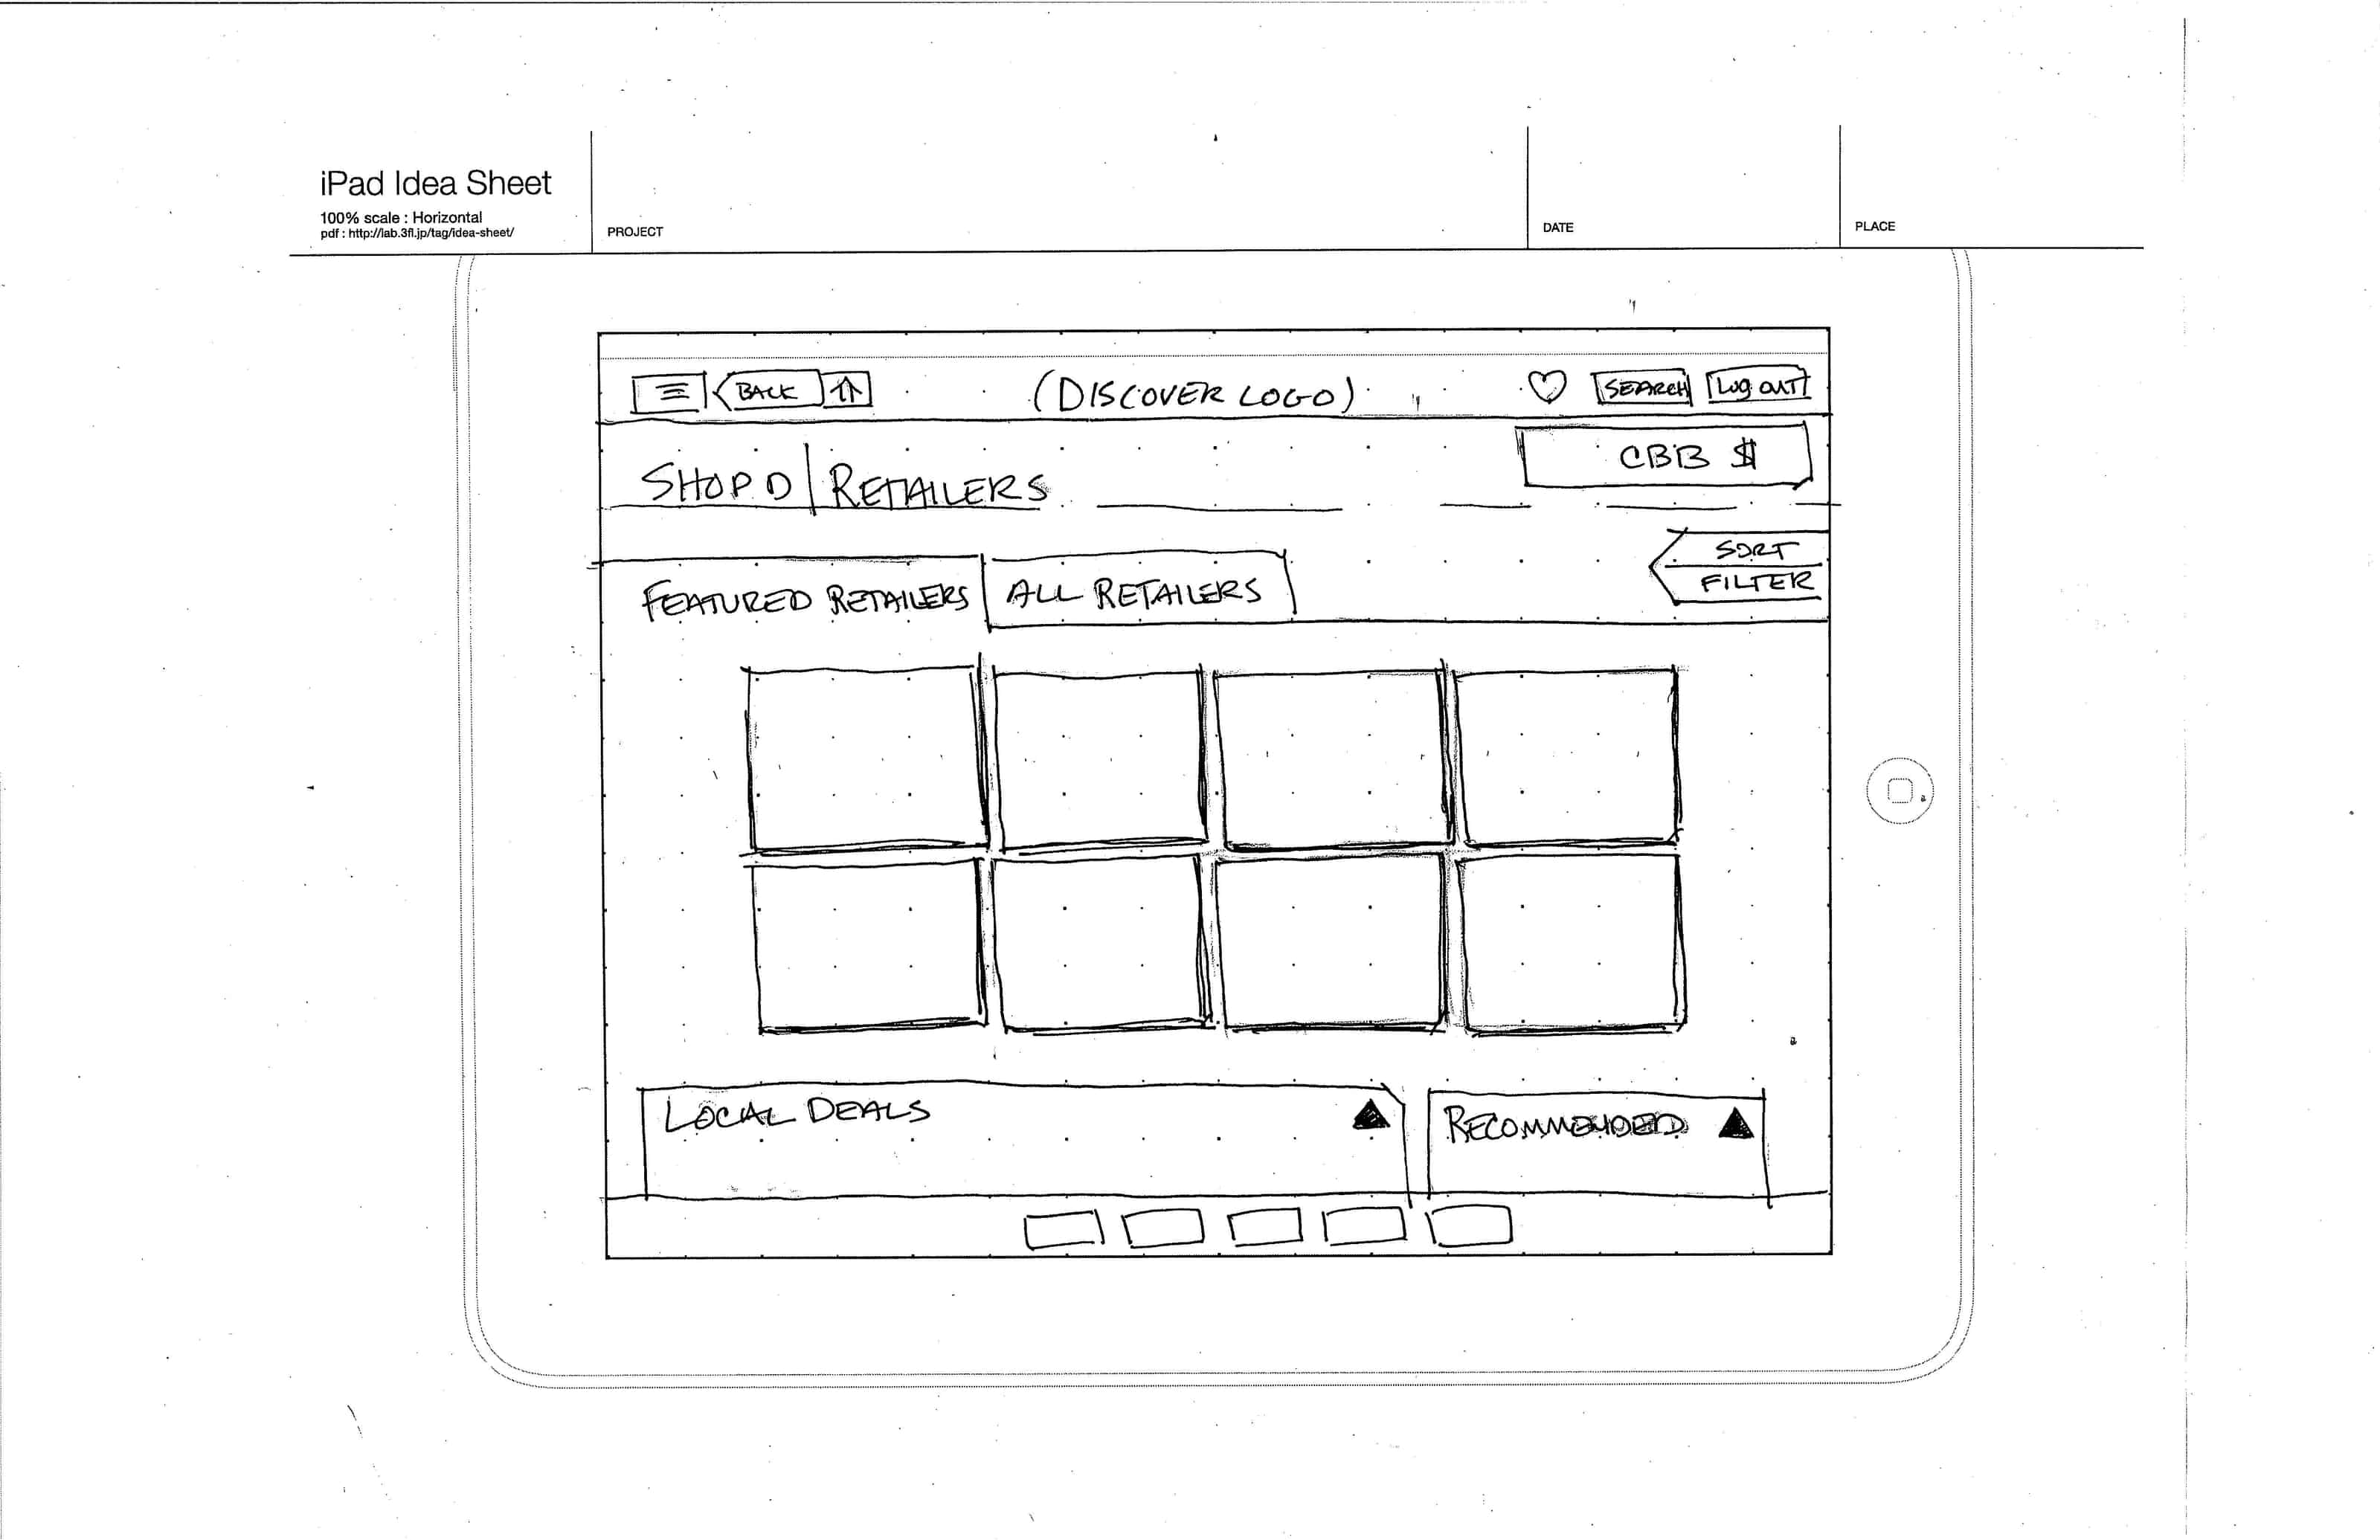 iPad Idea Sheet
100% scale : Horizontal
pdf : http://lab.3fl.jp/tag/idea-sheet/
PROJECT
DATE
PLACE
BACK
(DISCOVER LOGO)
SEARCH
LOG OUT
CBB $
SHOP D | RETAILERS
SORT
FILTER
FEATURED RETAILERS
ALL RETAILERS
LOCAL DEALS
RECOMMENDED